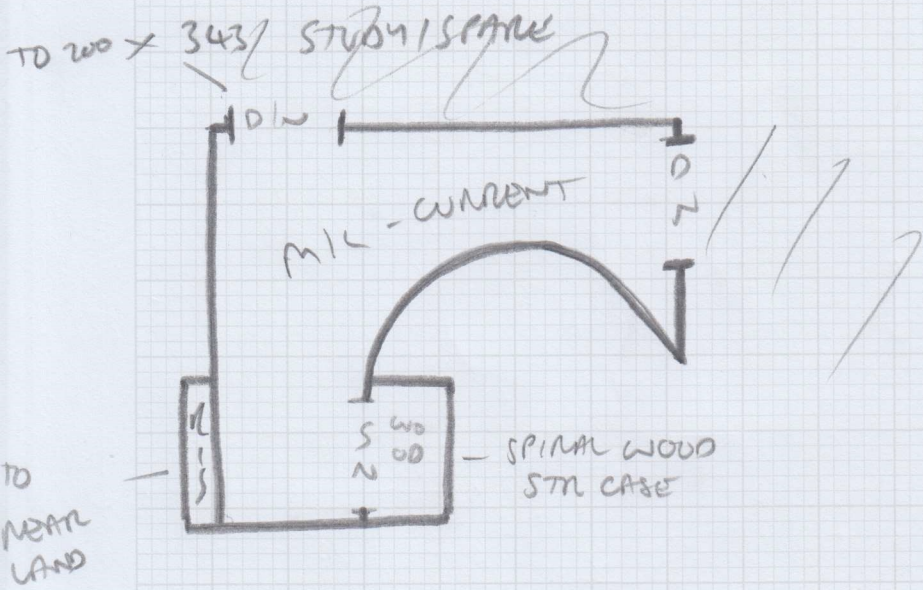 TO 200 X 343 STUDY/SPARE
D/N
D
N
M/L - CURRENT
R/S
S
N
WO
OD
- SPIRAL WOOD
STR CASE
TO
NEAR
LAND